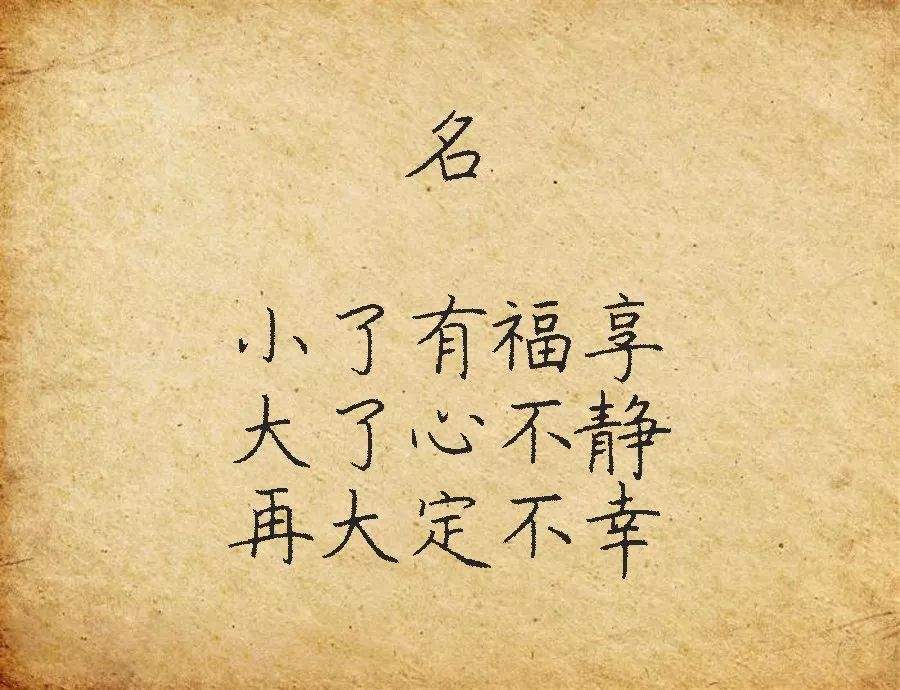 名
小了有福享
大了心不静
再大定不幸